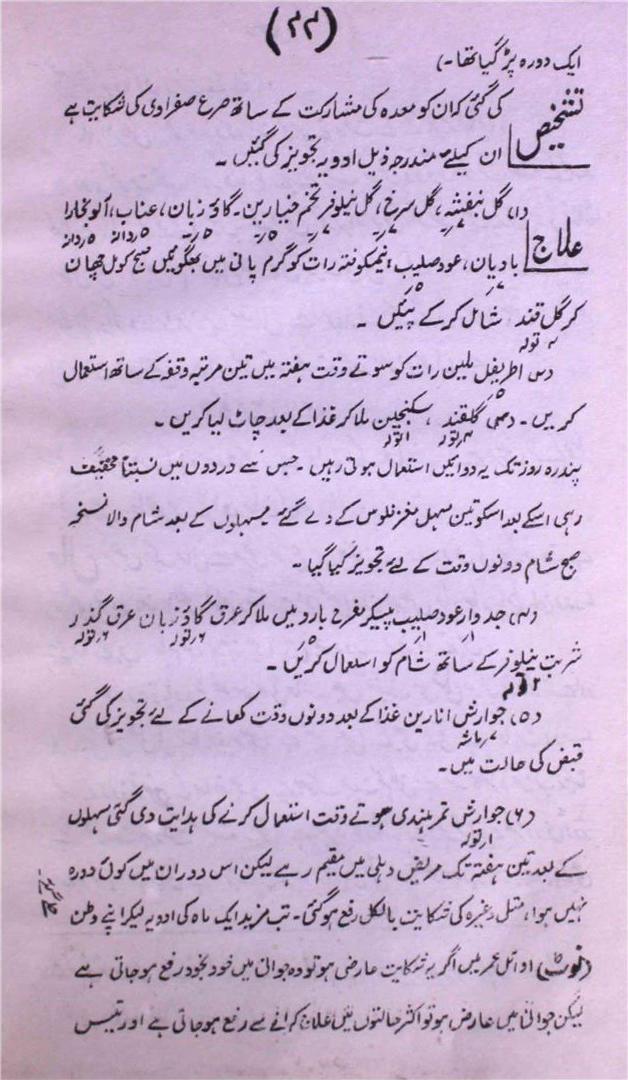 (۴۴)
ایک دورہ پڑ گیا تھا۔)
تشخیص
کی گئی کہ ان کو معدہ کی مشارکت کے ساتھ صرع صفراوی کی شکایت ہے
ان کیلئے مندرجہ ذیل ادویہ تجویز کی گئیں۔
علاج
(۱) گل بنفشہ، گل سرخ، گل نیلوفر تخم خیارین۔ گاؤ زبان، عناب، آلو بخارا
بادیان، عود صلیب نیمکوفتہ رات کو گرم پانی میں بھگوئیں صبح کو مل چھان
کر گل قند شامل کر کے پئیں۔
اطریفل ملین رات کو سوتے وقت ہفتہ میں تین مرتبہ وقفہ کے ساتھ استعمال
کریں۔ گلقند، سکنجبین ملا کر غذا کے بعد چاٹ لیا کریں۔
پندرہ روز تک یہ دوائیں استعمال ہوتی رہیں۔ جس سے دردوں میں نسبتاً تخفیف
رہی اسکے بعد اسکو تین مسہل مغز فلوس کے دے گئے مسہلوں کے بعد شام والا نسخہ
صبح شام دونوں وقت کے لئے تجویز کیا گیا۔
(۴) جدوار عود صلیب پیسکر مفرح بارد میں ملا کر عرق گاؤ زبان عرق گذر
شربت نیلوفر کے ساتھ شام کو استعمال کریں۔
(۵) جوارش انارین غذا کے بعد دونوں وقت کھانے کے لئے تجویز کی گئی
قبض کی حالت میں۔
(۶) جوارش تمر ہندی سوتے وقت استعمال کرنے کی ہدایت دی گئی مسہلوں
کے بعد تین ہفتہ تک مریض دہلی میں مقیم رہے لیکن اس دوران میں کوئی دورہ
نہیں ہوا، متلی وغیرہ کی شکایت بالکل رفع ہو گئی۔ تب مزید ایک ماہ کی ادویہ لیکر اپنے وطن
چلے گئے۔
(نوٹ) اوائل عمر میں اگر یہ شکایت عارض ہو تو وہ جوانی میں خود بخود رفع ہو جاتی ہے
لیکن جوانی میں عارض ہو تو اکثر حالتوں میں علاج کرانے سے رفع ہو جاتی ہے اور تیس